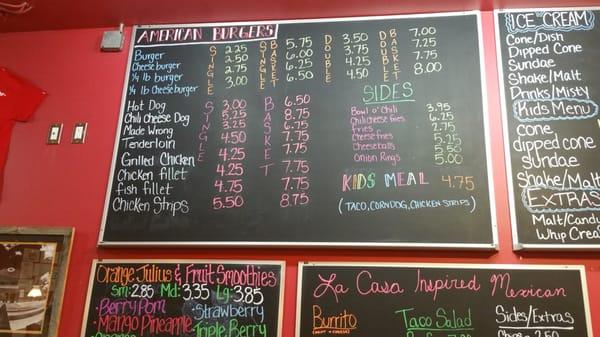 AMERICAN BURGERS
SINGLE SINGLE BASKET DOUBLE DOUBLE BASKET
Burger 2.25 5.75 3.50 7.00
Cheeseburger 2.50 6.00 3.75 7.25
1/4 lb burger 2.75 6.25 4.25 7.75
1/4 lb Cheeseburger 3.00 6.50 4.50 8.00
SINGLE BASKET
Hot Dog 3.00 6.50
Chili cheese Dog 5.25 8.75
Made Wrong 3.25 6.75
Tenderloin 4.50 7.75
Grilled Chicken 4.25 7.75
Chicken fillet 4.25 7.75
fish fillet 4.75 7.75
Chicken Strips 5.50 8.75
SIDES
Bowl o' Chili 3.95
Chili cheese fries 6.25
fries 2.75
Cheese fries 5.25
Cheeseballs 5.50
Onion Rings 5.00
KIDS MEAL 4.75
(TACO, CORNDOG, CHICKEN STRIPS)
ICE CREAM
Cone/Dish
Dipped Cone
Sundae
Shake/Malt
Drinks/Misty
Kids Menu
cone
dipped cone
sundae
Shake/Malt
EXTRAS
Malt/Candy
Whip Crea
Orange Julius & Fruit Smoothies
Sm: 2.85 Md: 3.35 Lg: 3.85
Berry Pom
Strawberry
Mango Pineapple
Triple Berry
La Casa Inspired Mexican
Burrito Taco Salad Sides/Extras
2.50